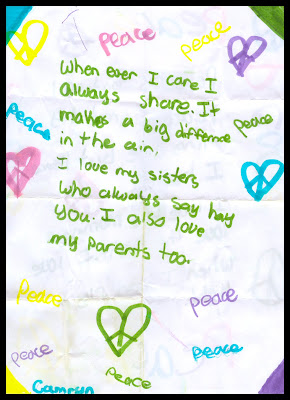 peace
peace
When ever I care I
always share. It
peace
makes a big difference
peace
in the air.
I love my sisters
who always say hay
you. I also love
my parents too.
peace
peace
peace
peace
peace
Camryn